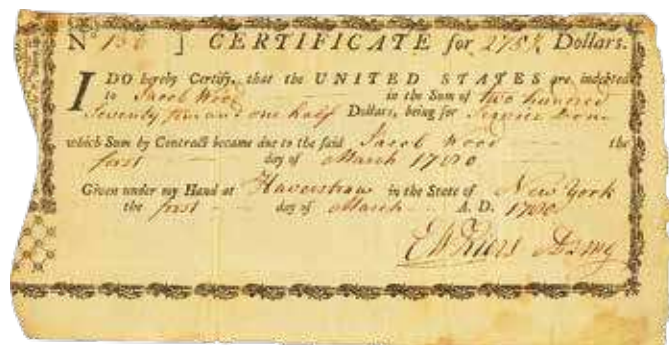 No 156 ] CERTIFICATE for 275½ Dollars.
I DO hereby Certify, that the UNITED STATES are indebted
to Jacob Wood in the Sum of two hundred
Seventy five and one half Dollars, being for Service Done
which Sum by Contract became due to the said Jacob Wood the
first day of March 1780
Given under my Hand at Haverstraw in the State of New York
the first day of March A. D. 1780